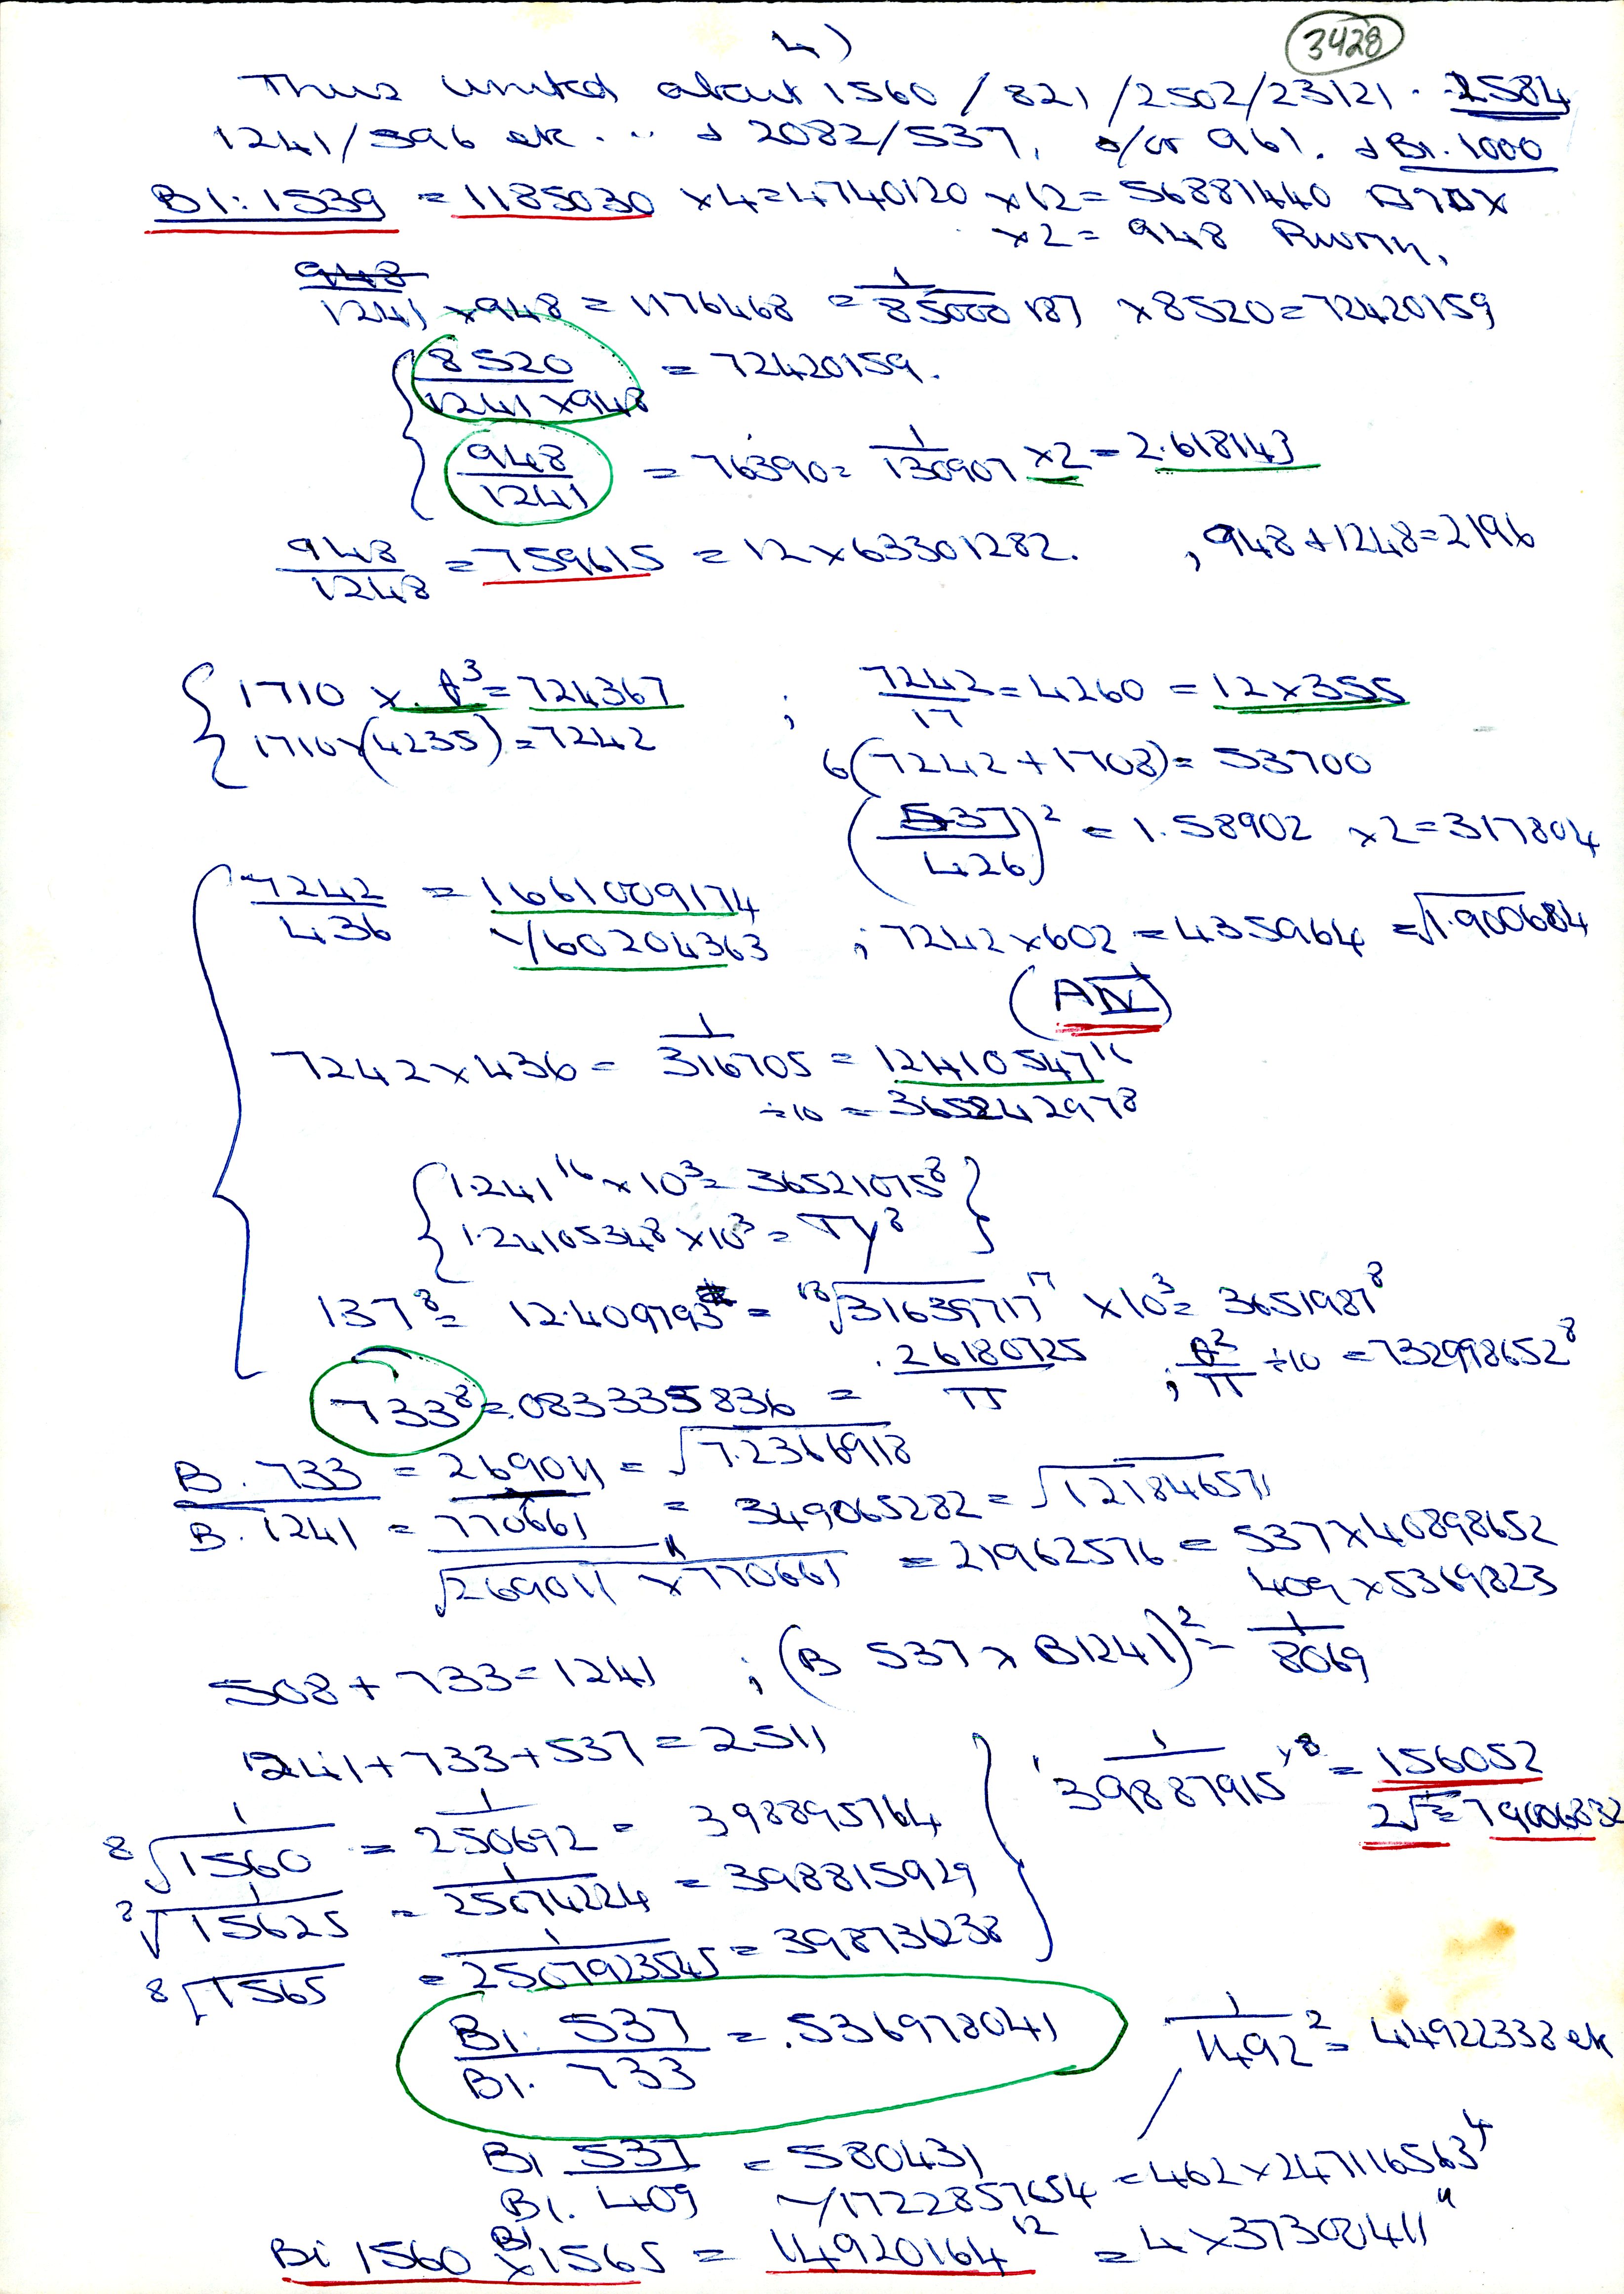 4)
3428
Thus united about 1560 / 821 / 2502 / 23121 . 2584
1241/596 etc ... + 2082/537, &/or 961. + B1. 1000
B1: 1539 = 1185030 x4=4740120 x12= 56881440
x2 = 948
948
1241 x948 = 1176468 = 1/85000187 x8520=72420159
8520/1241 x948 = 72420159.
948/1241 = 76390= 1/130907 x2 = 2.618143
948/1248 = 759615 = 12 x 63301282. , 948+1248=2196
1710 x θ³ = 724367 ; 7242/17 = 4260 = 12 x 355
1710x(4235)=7242
6(7242+1708)= 53700
(537/426)² = 1.58902 x2=317804
7242/436 = 1661009174
√60204363 ; 7242x602 = 435964 = √1.900684
(AN)
7242 x 436 = 1/316705 = 12410547¹⁶
÷10 = 365242978
1.241¹⁶ x 10³= 36521075⁸
1.24105348 x10³ = Ty⁸
137⁸= 12.409793 = ¹⁸√31635717¹⁷ x10³= 3651987⁸
733⁸=.083335836 = .26180725/π ; θ²/π ÷10 = 732998652⁸
B. 733 = 269011 = √7.2366918
B. 1241 = 770661 = 349065282 = √121846571
√269011 x 770661 = 21962576 = 537x40898652
409 x 5369823
508 + 733 = 1241 ; (B 537 x B1241)² = 1/8069
1241+733+537=2511
⁸√1/1560 = 1/250692 = 398895764
⁸√1/15625 = 1/25074224 = 398815929
⁸√1565 = 1/2507923545 = 398736238
1/39887915 ˣ⁸ = 156052
2√ = 79006832
B1. 537/B1. 733 = .536978041
1/1492² = 44922338 etc
B1 537/B1. 409 = 580431
√1722857654 = 462x247116563⁴
B1 1560 x B1 1565 = 114920164¹² = 4x37302411⁴